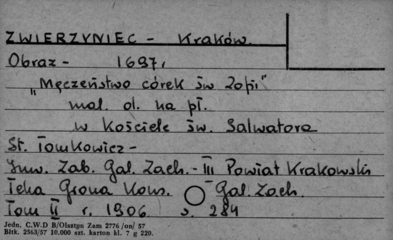 ZWIERZYNIEC - Kraków.
Obraz - 1697r.
"Męczeństwo córek św Zofii"
mal. ol. na pł.
w Kościele św. Salwatora
St. Tomkowicz -
Inw. Zab. Gal. Zach. - III Powiat Krakowski
Teka Grona Kons. Gal. Zach.
Tom II r. 1906 s. 284
Jedn. C.W.D B/Olsztyn Zam 2776 /on/ 57
Błtk. 2563/57 10.000 szt. karton kl. 7 g 220.